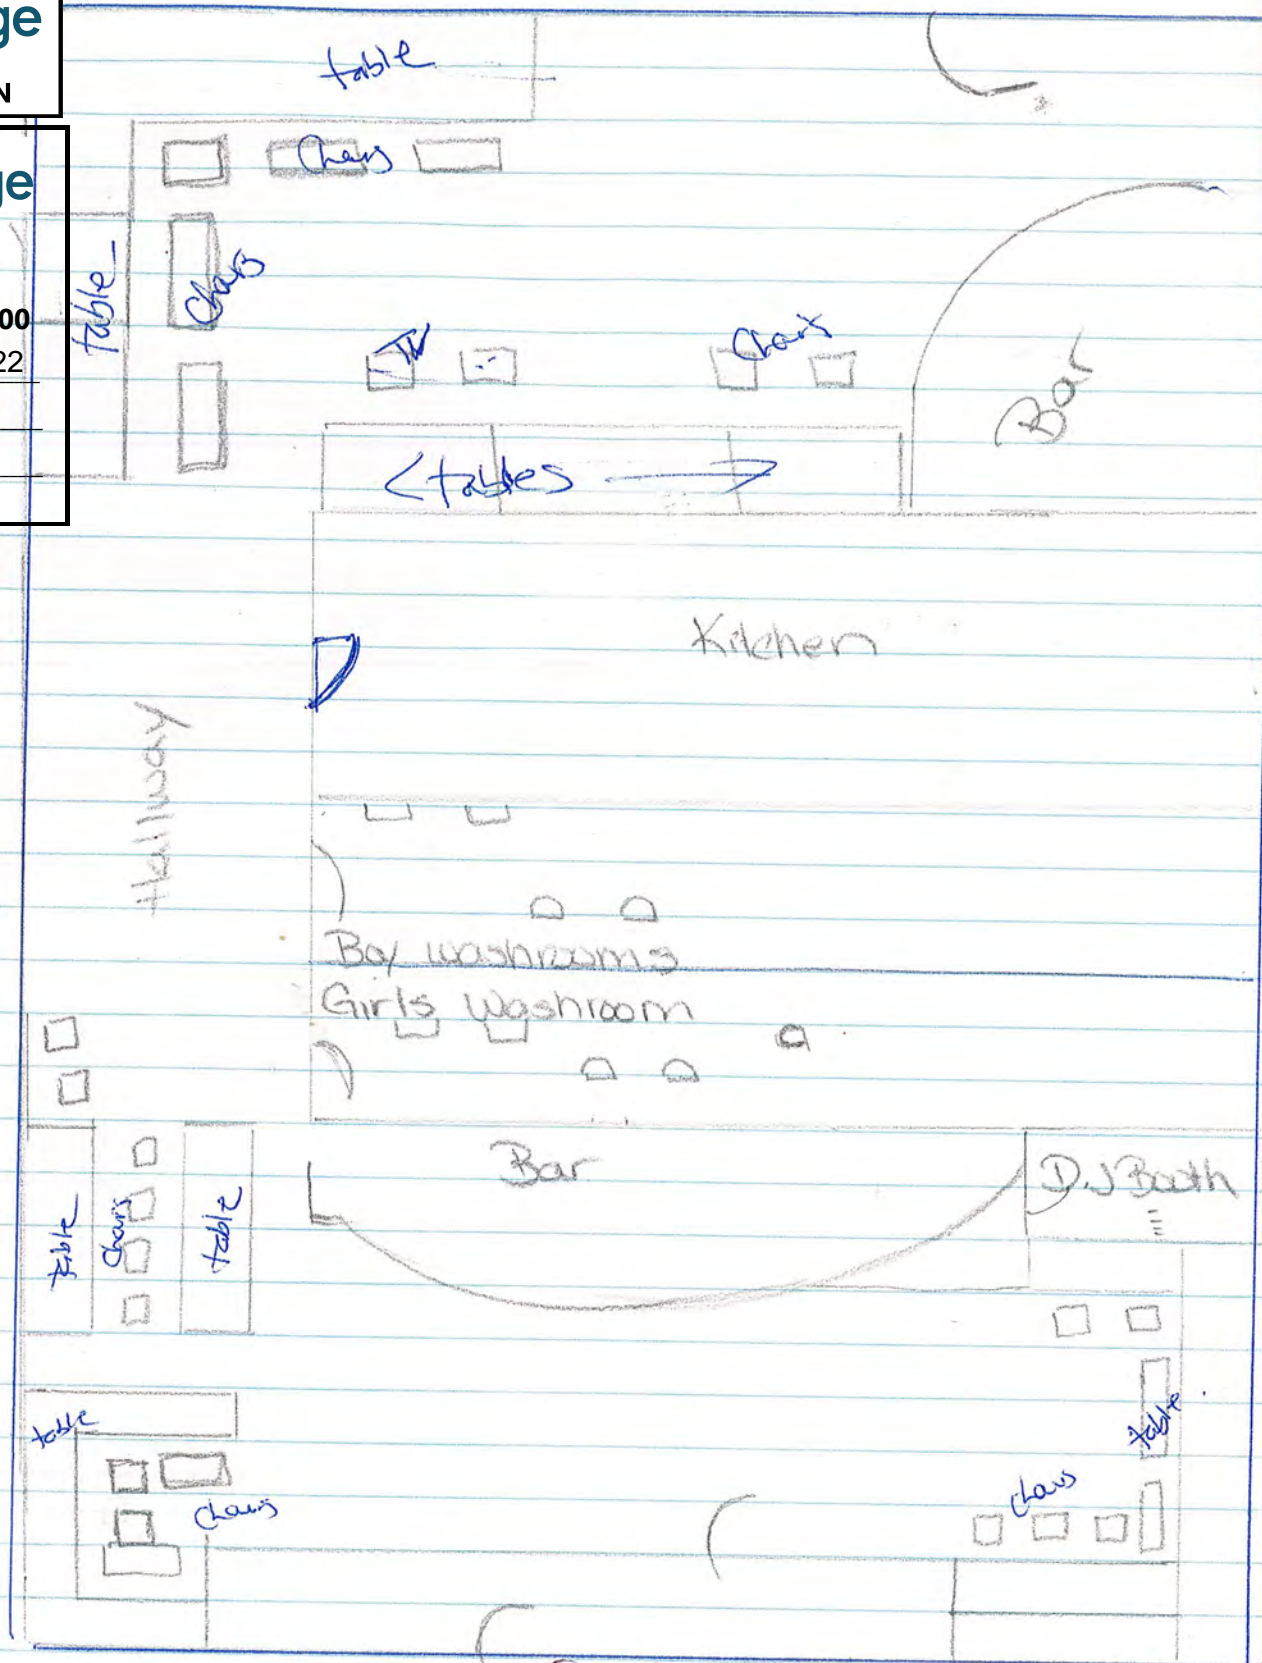 ge
N
ge
00
22
table
Chars
table
Chars
TV
Chars
Bar
<tables
Kitchen
Hallway
Boy washrooms
Girls Washroom
Bar
D.J Booth
table
Chars
table
table
table
Chars
Chars